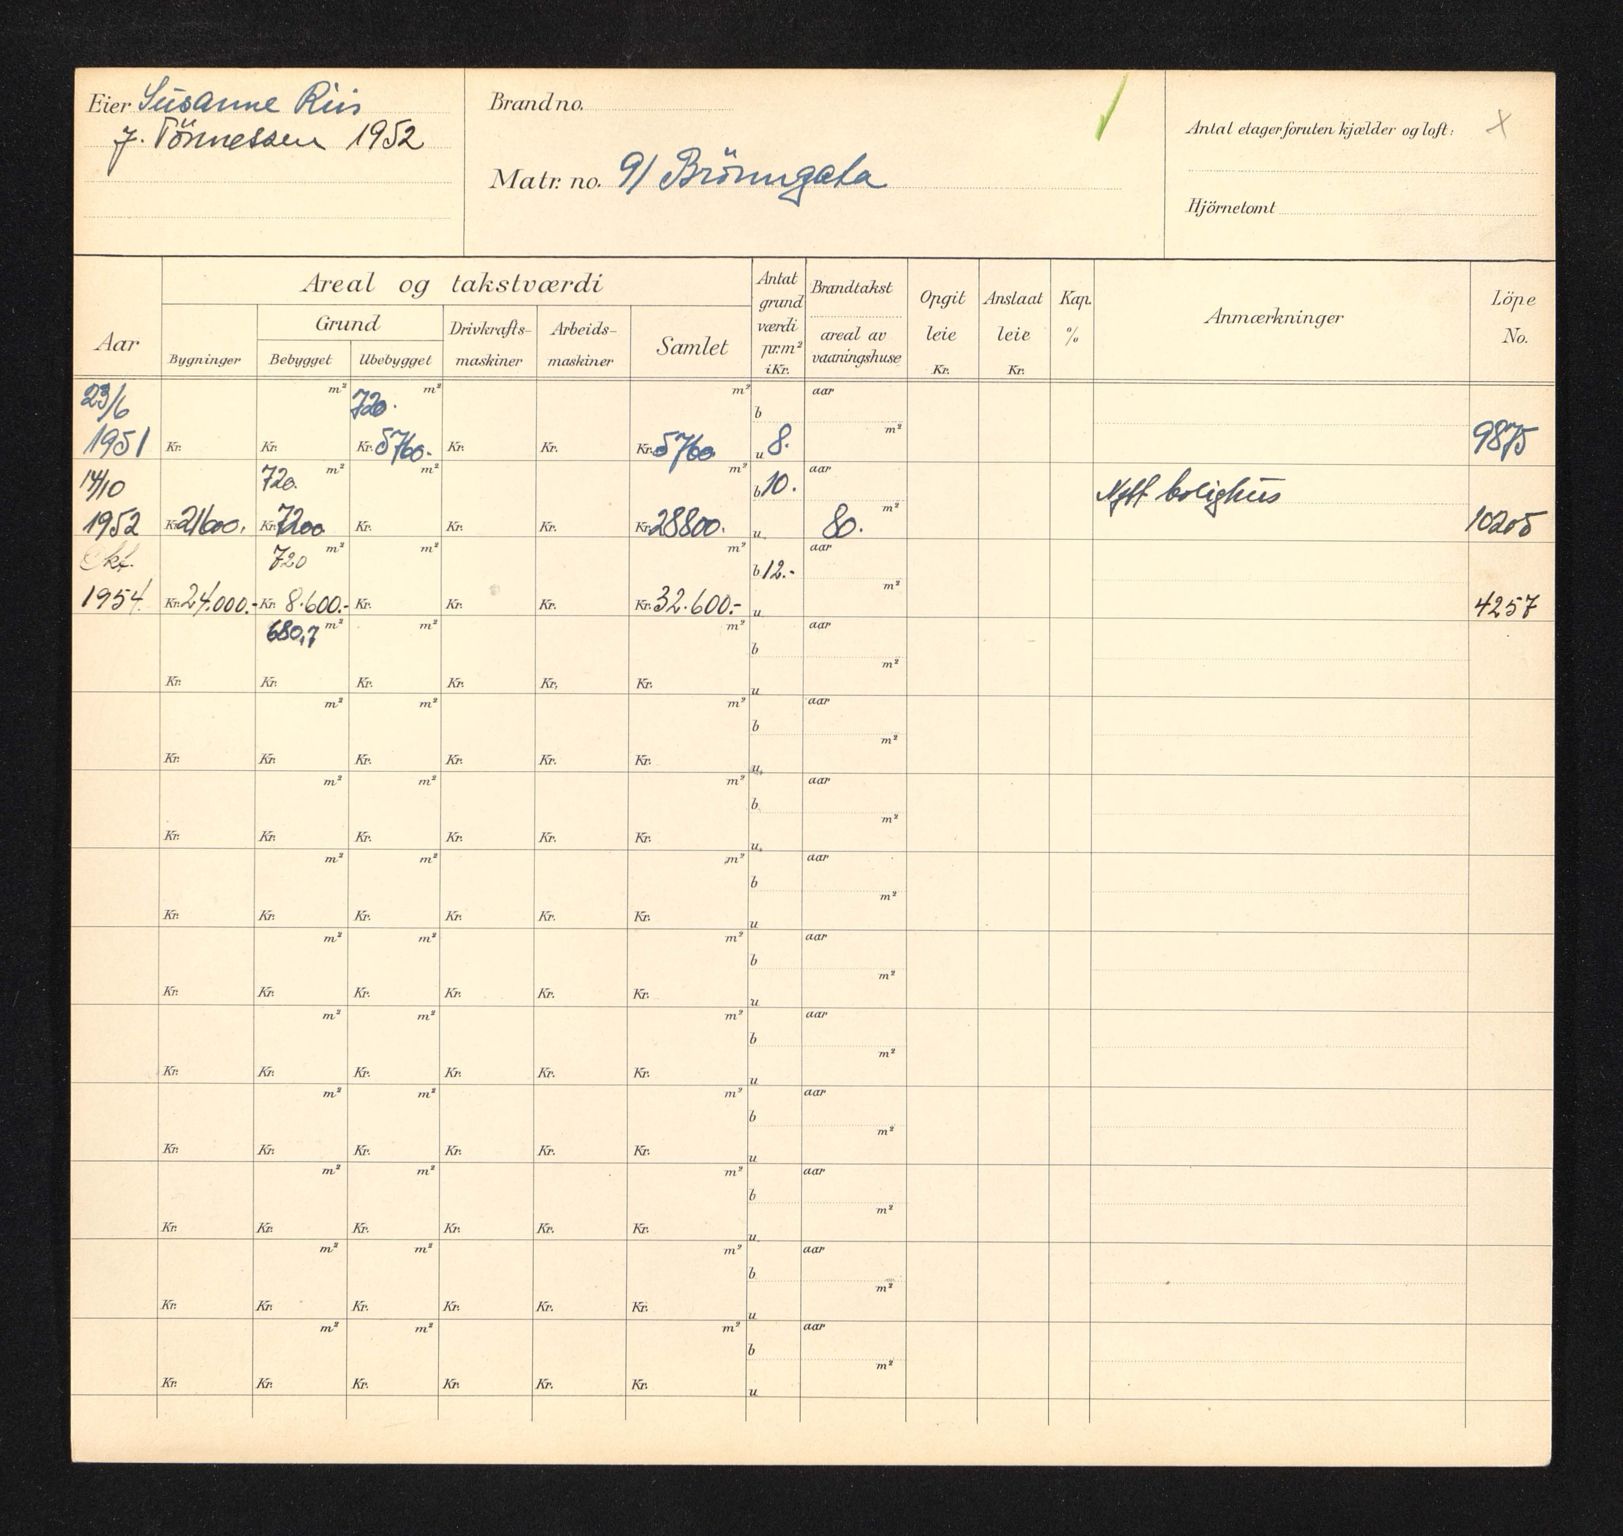 Eier Susanne Riis
J. Tönnessen 1952
Brand no.
Matr. no. 9/ Brönngata
Antal etager foruten kjælder og loft: X
Hjörnetomt
Aar
Areal og takstværdi
Bygninger
Grund
Bebygget
Ubebygget
Drivkrafts-maskiner
Arbeids-maskiner
Samlet
Antat grund værdi pr. m² i Kr.
Brandtakst
areal av vaaningshuse
Opgit leie Kr.
Anslaat leie Kr.
Kap. %
Anmærkninger
Löpe No.
23/6 m² 720. m² m² b aar
1951 Kr. Kr. Kr. 5760.- Kr. Kr. Kr. 5760 u 8. m² 9875
14/10 720. m² m² m² b 10. aar Nytt bolighus
1952 Kr. 21600. Kr. 7200 Kr. Kr. Kr. Kr. 28800. u 80. m² 10205
Okt. 720 m² m² m² b 12.- aar
1954 Kr. 24.000.- Kr. 8.600.- Kr. Kr. Kr. Kr. 32.600.- u m² 4257
680,7 m² m² m² b aar
Kr. Kr. Kr. Kr. Kr. Kr. u m²
m² m² m² b aar
Kr. Kr. Kr. Kr. Kr. Kr. u m²
m² m² m² b aar
Kr. Kr. Kr. Kr. Kr. Kr. u m²
m² m² m² b aar
Kr. Kr. Kr. Kr. Kr. Kr. u m²
m² m² m² b aar
Kr. Kr. Kr. Kr. Kr. Kr. u m²
m² m² m² b aar
Kr. Kr. Kr. Kr. Kr. Kr. u m²
m² m² m² b aar
Kr. Kr. Kr. Kr. Kr. Kr. u m²
m² m² m² b aar
Kr. Kr. Kr. Kr. Kr. Kr. u m²
m² m² m² b aar
Kr. Kr. Kr. Kr. Kr. Kr. u m²
m² m² m² b aar
Kr. Kr. Kr. Kr. Kr. Kr. u m²